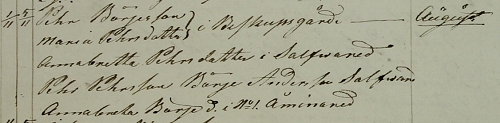 1/11 5/11 Pehr Börjesson } i Biskupsgårde — August
Maria Pehrsdatter
Annabretta Pehrsdatter i Salfvared
Pehr Pehrsson Börje Andersson Salfvared
Annabreta Börje d. i No 1. Aminared